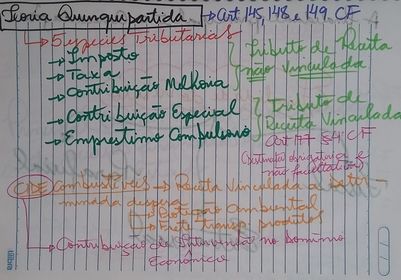 Teoria Quinquipartida → Art 145, 148 e 149 CF
→ 5 Espécies Tributárias
→ Imposto
→ Taxa
→ Contribuição Melhoria
Tributo de Receita
não Vinculada
→ Contribuição Especial
→ Empréstimo Compulsório
Tributo de
Receita Vinculada
Art 177 §4º CF
(Destinata obrigatória e
não facultativa)
CIDE Combustíveis → Receita Vinculada a deter-
minada despesa
→ Proteção Ambiental
→ Frete Transp. produtos
→ Contribuição de Intervenção no Domínio
Econômico
tilibra